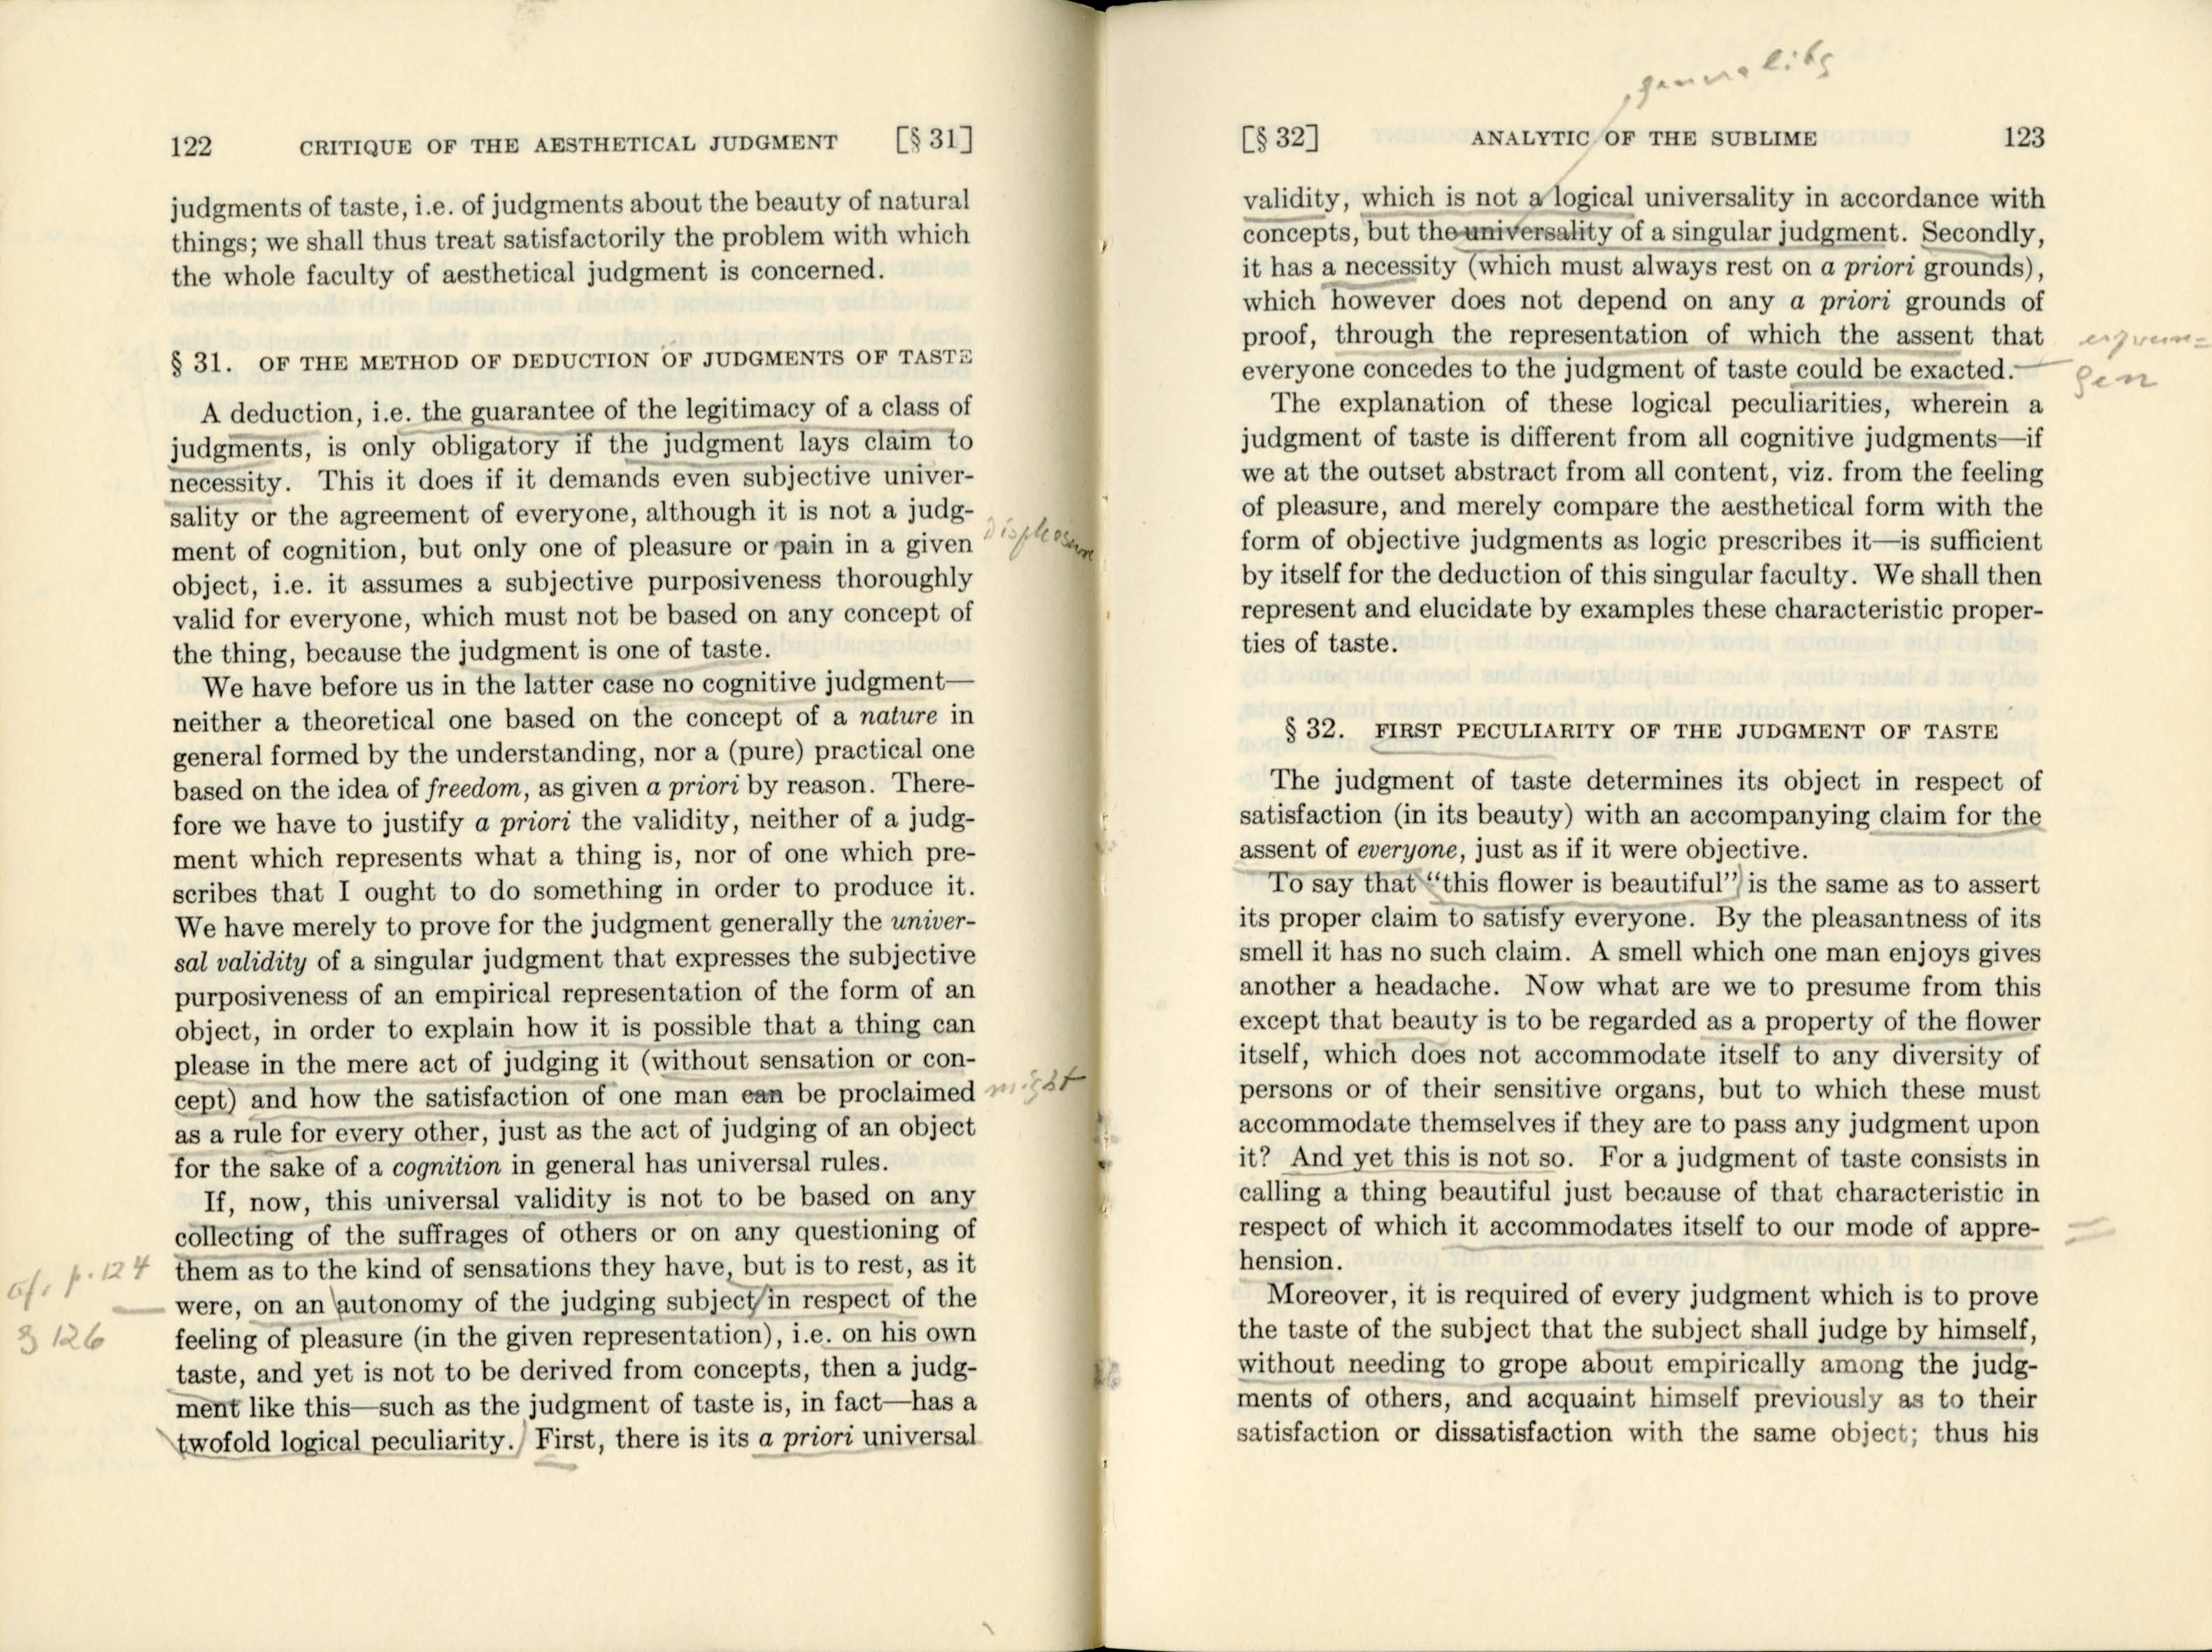 122 CRITIQUE OF THE AESTHETICAL JUDGMENT [§ 31]
judgments of taste, i.e. of judgments about the beauty of natural
things; we shall thus treat satisfactorily the problem with which
the whole faculty of aesthetical judgment is concerned.
§ 31. OF THE METHOD OF DEDUCTION OF JUDGMENTS OF TASTE
A deduction, i.e. the guarantee of the legitimacy of a class of
judgments, is only obligatory if the judgment lays claim to
necessity. This it does if it demands even subjective univer-
sality or the agreement of everyone, although it is not a judg-
ment of cognition, but only one of pleasure or pain in a given
displeasure
object, i.e. it assumes a subjective purposiveness thoroughly
valid for everyone, which must not be based on any concept of
the thing, because the judgment is one of taste.
We have before us in the latter case no cognitive judgment—
neither a theoretical one based on the concept of a nature in
general formed by the understanding, nor a (pure) practical one
based on the idea of freedom, as given a priori by reason. There-
fore we have to justify a priori the validity, neither of a judg-
ment which represents what a thing is, nor of one which pre-
scribes that I ought to do something in order to produce it.
We have merely to prove for the judgment generally the univer-
sal validity of a singular judgment that expresses the subjective
purposiveness of an empirical representation of the form of an
object, in order to explain how it is possible that a thing can
please in the mere act of judging it (without sensation or con-
cept) and how the satisfaction of one man can be proclaimed
might
as a rule for every other, just as the act of judging of an object
for the sake of a cognition in general has universal rules.
If, now, this universal validity is not to be based on any
collecting of the suffrages of others or on any questioning of
them as to the kind of sensations they have, but is to rest, as it
cf. p. 124
were, on an autonomy of the judging subject in respect of the
feeling of pleasure (in the given representation), i.e. on his own
126
taste, and yet is not to be derived from concepts, then a judg-
ment like this—such as the judgment of taste is, in fact—has a
twofold logical peculiarity. First, there is its a priori universal
generality
[§ 32] ANALYTIC OF THE SUBLIME 123
validity, which is not a logical universality in accordance with
concepts, but the universality of a singular judgment. Secondly,
it has a necessity (which must always rest on a priori grounds),
which however does not depend on any a priori grounds of
proof, through the representation of which the assent that
everyone concedes to the judgment of taste could be exacted.
The explanation of these logical peculiarities, wherein a
judgment of taste is different from all cognitive judgments—if
we at the outset abstract from all content, viz. from the feeling
of pleasure, and merely compare the aesthetical form with the
form of objective judgments as logic prescribes it—is sufficient
by itself for the deduction of this singular faculty. We shall then
represent and elucidate by examples these characteristic proper-
ties of taste.
§ 32. FIRST PECULIARITY OF THE JUDGMENT OF TASTE
The judgment of taste determines its object in respect of
satisfaction (in its beauty) with an accompanying claim for the
assent of everyone, just as if it were objective.
To say that “this flower is beautiful” is the same as to assert
its proper claim to satisfy everyone. By the pleasantness of its
smell it has no such claim. A smell which one man enjoys gives
another a headache. Now what are we to presume from this
except that beauty is to be regarded as a property of the flower
itself, which does not accommodate itself to any diversity of
persons or of their sensitive organs, but to which these must
accommodate themselves if they are to pass any judgment upon
it? And yet this is not so. For a judgment of taste consists in
calling a thing beautiful just because of that characteristic in
respect of which it accommodates itself to our mode of appre-
hension.
Moreover, it is required of every judgment which is to prove
the taste of the subject that the subject shall judge by himself,
without needing to grope about empirically among the judg-
ments of others, and acquaint himself previously as to their
satisfaction or dissatisfaction with the same object; thus his